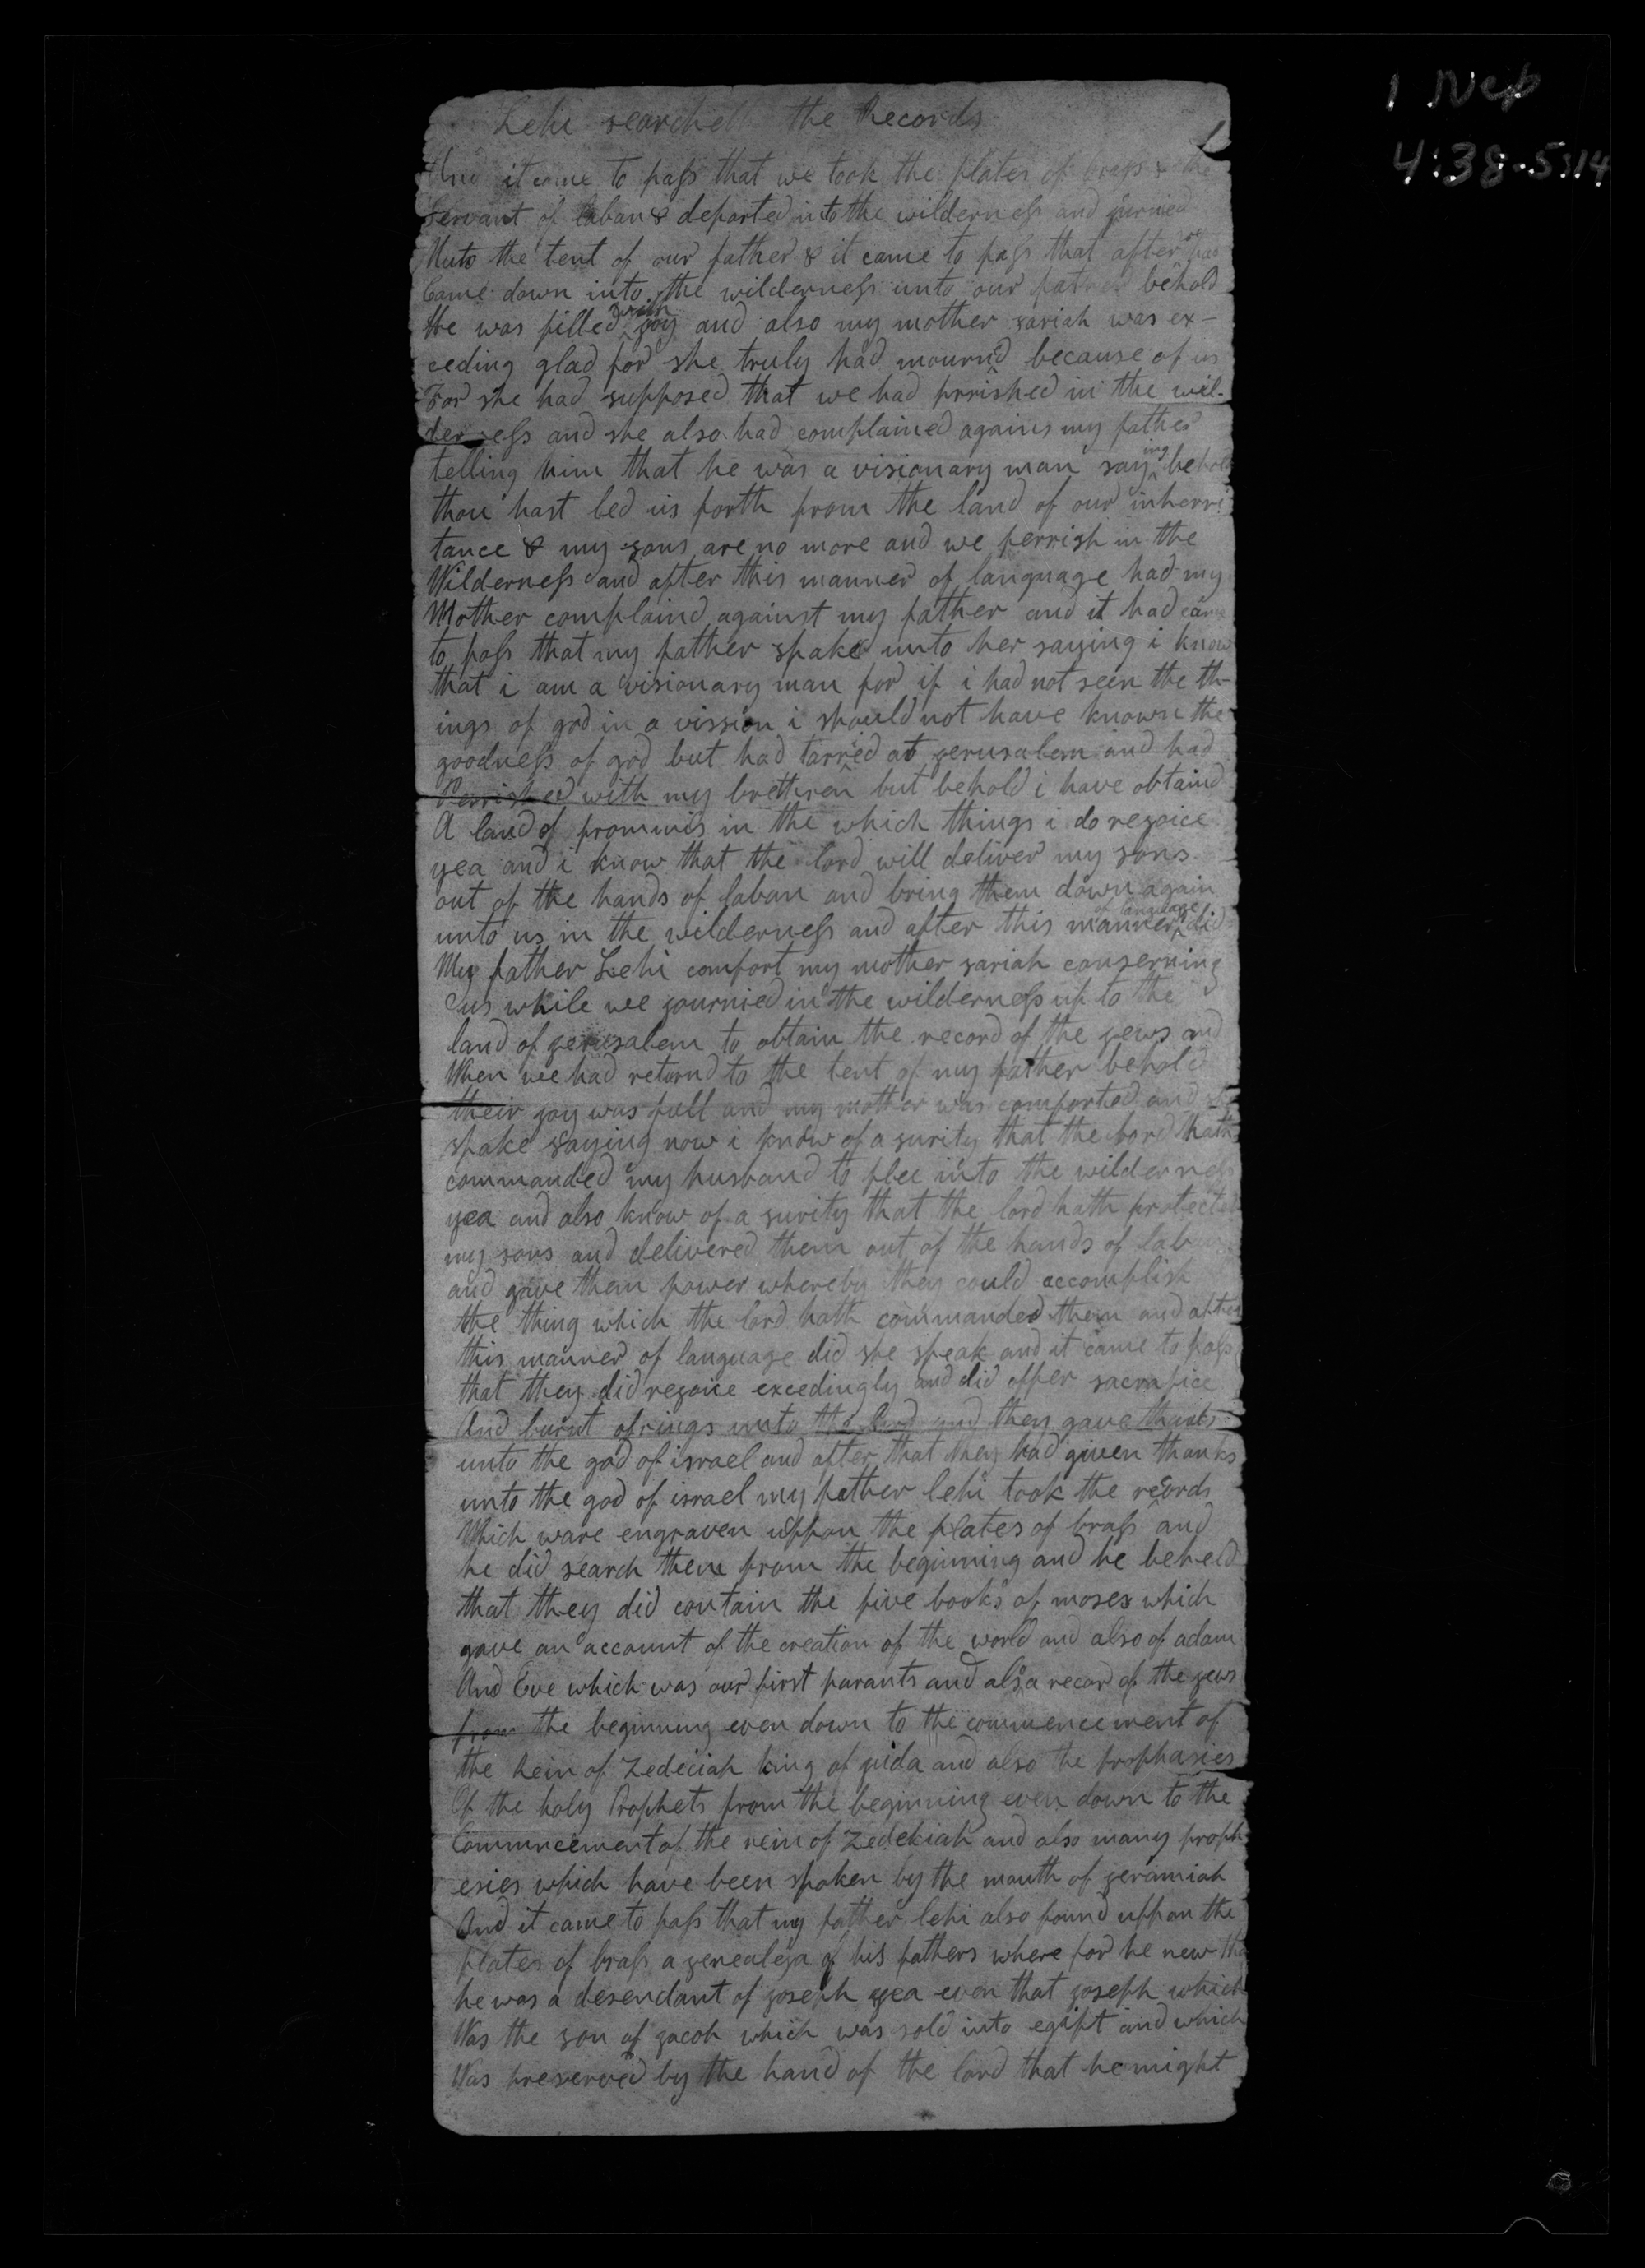 1 Nep
4:38-5:14
Lehi searcheth the Records
And it came to pass that we took the plates of brass & the
Servant of laban & departed into the wilderness and jurnied
Unto the tent of our father & it came to pass that after we had
Came down into the wilderness unto our father behold
He was filled with joy and also my mother sariah was ex-
ceeding glad for she truly had mournd because of us
For she had supposed that we had prrished in the wil-
derness and she also had complained agains my father
telling him that he was a visionary man saying behold
thou hast led us forth from the land of our inherri
tance & my sons are no more and we perrish in the
Wilderness and after this manner of language had my
Mother complaind against my father and it had came
to pass that my father spake unto her saying i know
that i am a visionary man for if i had not seen the th-
ings of god in a vission i should not have known the
goodness of god but had tarried at jerusalem and had
Perrished with my brethren but behold i have obtaind
A land of prommis in the which things i do rejoice
yea and i know that the lord will deliver my sons
out of the hands of laban and bring them down again
unto us in the wilderness and after this manner of language did
My father Lehi comfort my mother sariah conserning
us while we journied in the wilderness up to the
land of jerusalem to obtain the record of the jews and
When we had returnd to the tent of my father behold
their joy was full and my mother was comforted and she
spake saying now i know of a surity that the lord hath
commanded my husband to flee into the wilderness
yea and also know of a surity that the lord hath protected
my sons and delivered them out of the hands of laban
and gave them power whereby they could accomplish
the thing which the lord hath commanded them and after
this manner of language did she speak and it came to pass
that they did rejoice exceedingly and did offer sacrafice
And burnt ofrings unto the lord and they gave thanks
unto the god of israel and after that they had given thanks
unto the god of israel my father lehi took the records
Which ware engraven uppon the plates of brass and
he did search them from the beginning and he beheld
that they did contain the five books of moses which
gave an account of the creation of the world and also of adam
And Eve which was our first parants and also a recor of the jews
from the beginning even down to the commencement of
the Rein of Zedeciah king of juda and also the prophasies
Of the holy Prophets from the beginning even down to the
Commncement of the rein of Zedekiah and also many proph
esies which have been spoken by the mouth of jeramiah
And it came to pass that my father lehi also found uppon the
plates of brass a genealoja of his fathers where for he new tha
he was a desendant of joseph yea even that joseph which
Was the son of jacob which was sold into egipt and which
Was preserved by the hand of the lord that he might